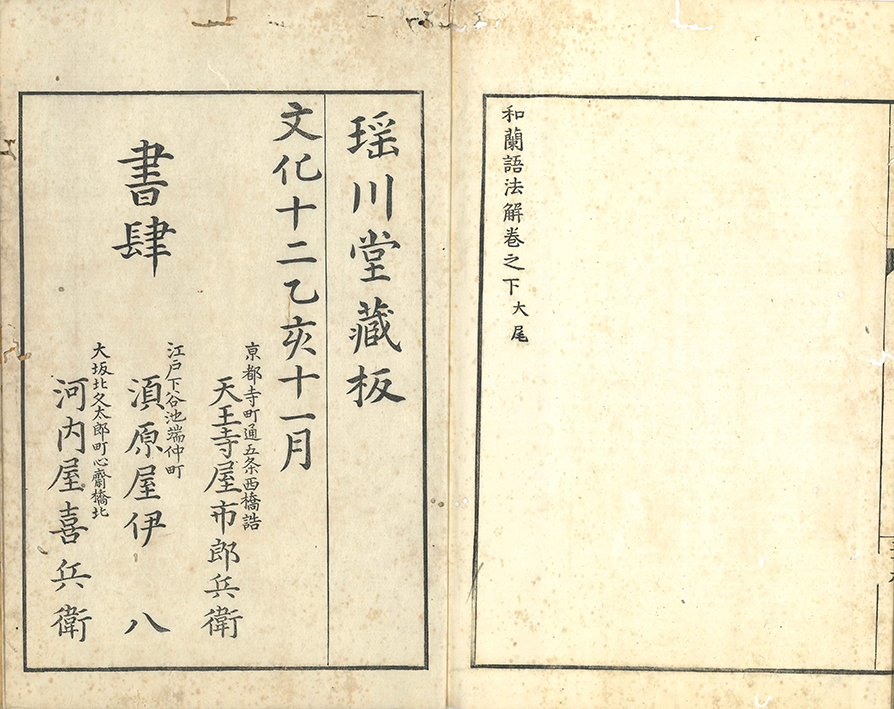 和蘭語法解巻之下大尾
瑶川堂藏板
文化十二乙亥十一月
書肆
京都寺町通五条西橋詰
天王寺屋市郎兵衛
江戸下谷池端仲町
須原屋伊八
大坂北久太郎町心齋橋北
河内屋喜兵衛